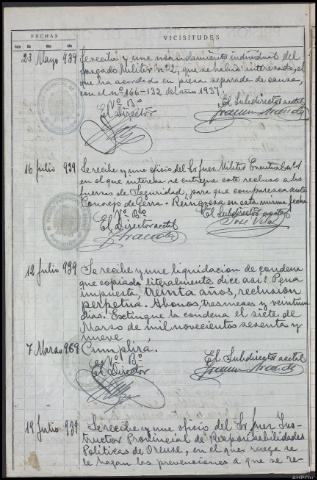 FECHAS
VICISITUDES
Día Mes Año
23 Mayo 939 Se recibe y une mandamiento individual del
Juzgado Militar nº 2, que se había interesado, el
que ha acordado en pieza separada de causa,
con el nº 166-132 del año 1937.
Vº Bº
El Director
El Subdirector acctal
16 julio 939 Se recibe y une oficio del Sr Juez Militar Eventual nº 1
en el que interesa se entregue este recluso a las
fuerzas de Seguridad, para que comparezca ante
Consejo de Guerra. Reingresa en esta misma fecha
Vº Bº
El Director acctal
El Subdirector acctal
José Vidal
12 Julio 939 Se recibe y une liquidación de condena
que copiada literalmente dice así: Pena
impuesta, treinta años, reclusión
perpetua. Abonos, tres meses y veintiun
días. Extingue la condena el siete de
Marzo de mil novecientos sesenta y
nueve
7 Marzo 969 Cumplirá.
Vº Bº
El Director
El Subdirector acctal
19 Julio 939 Se recibe y une oficio del Sr Juez Ins-
tructor Provincial de Responsabilidades
Políticas de Orense, en el que ruega se
le hagan las prevenciones a que se re-